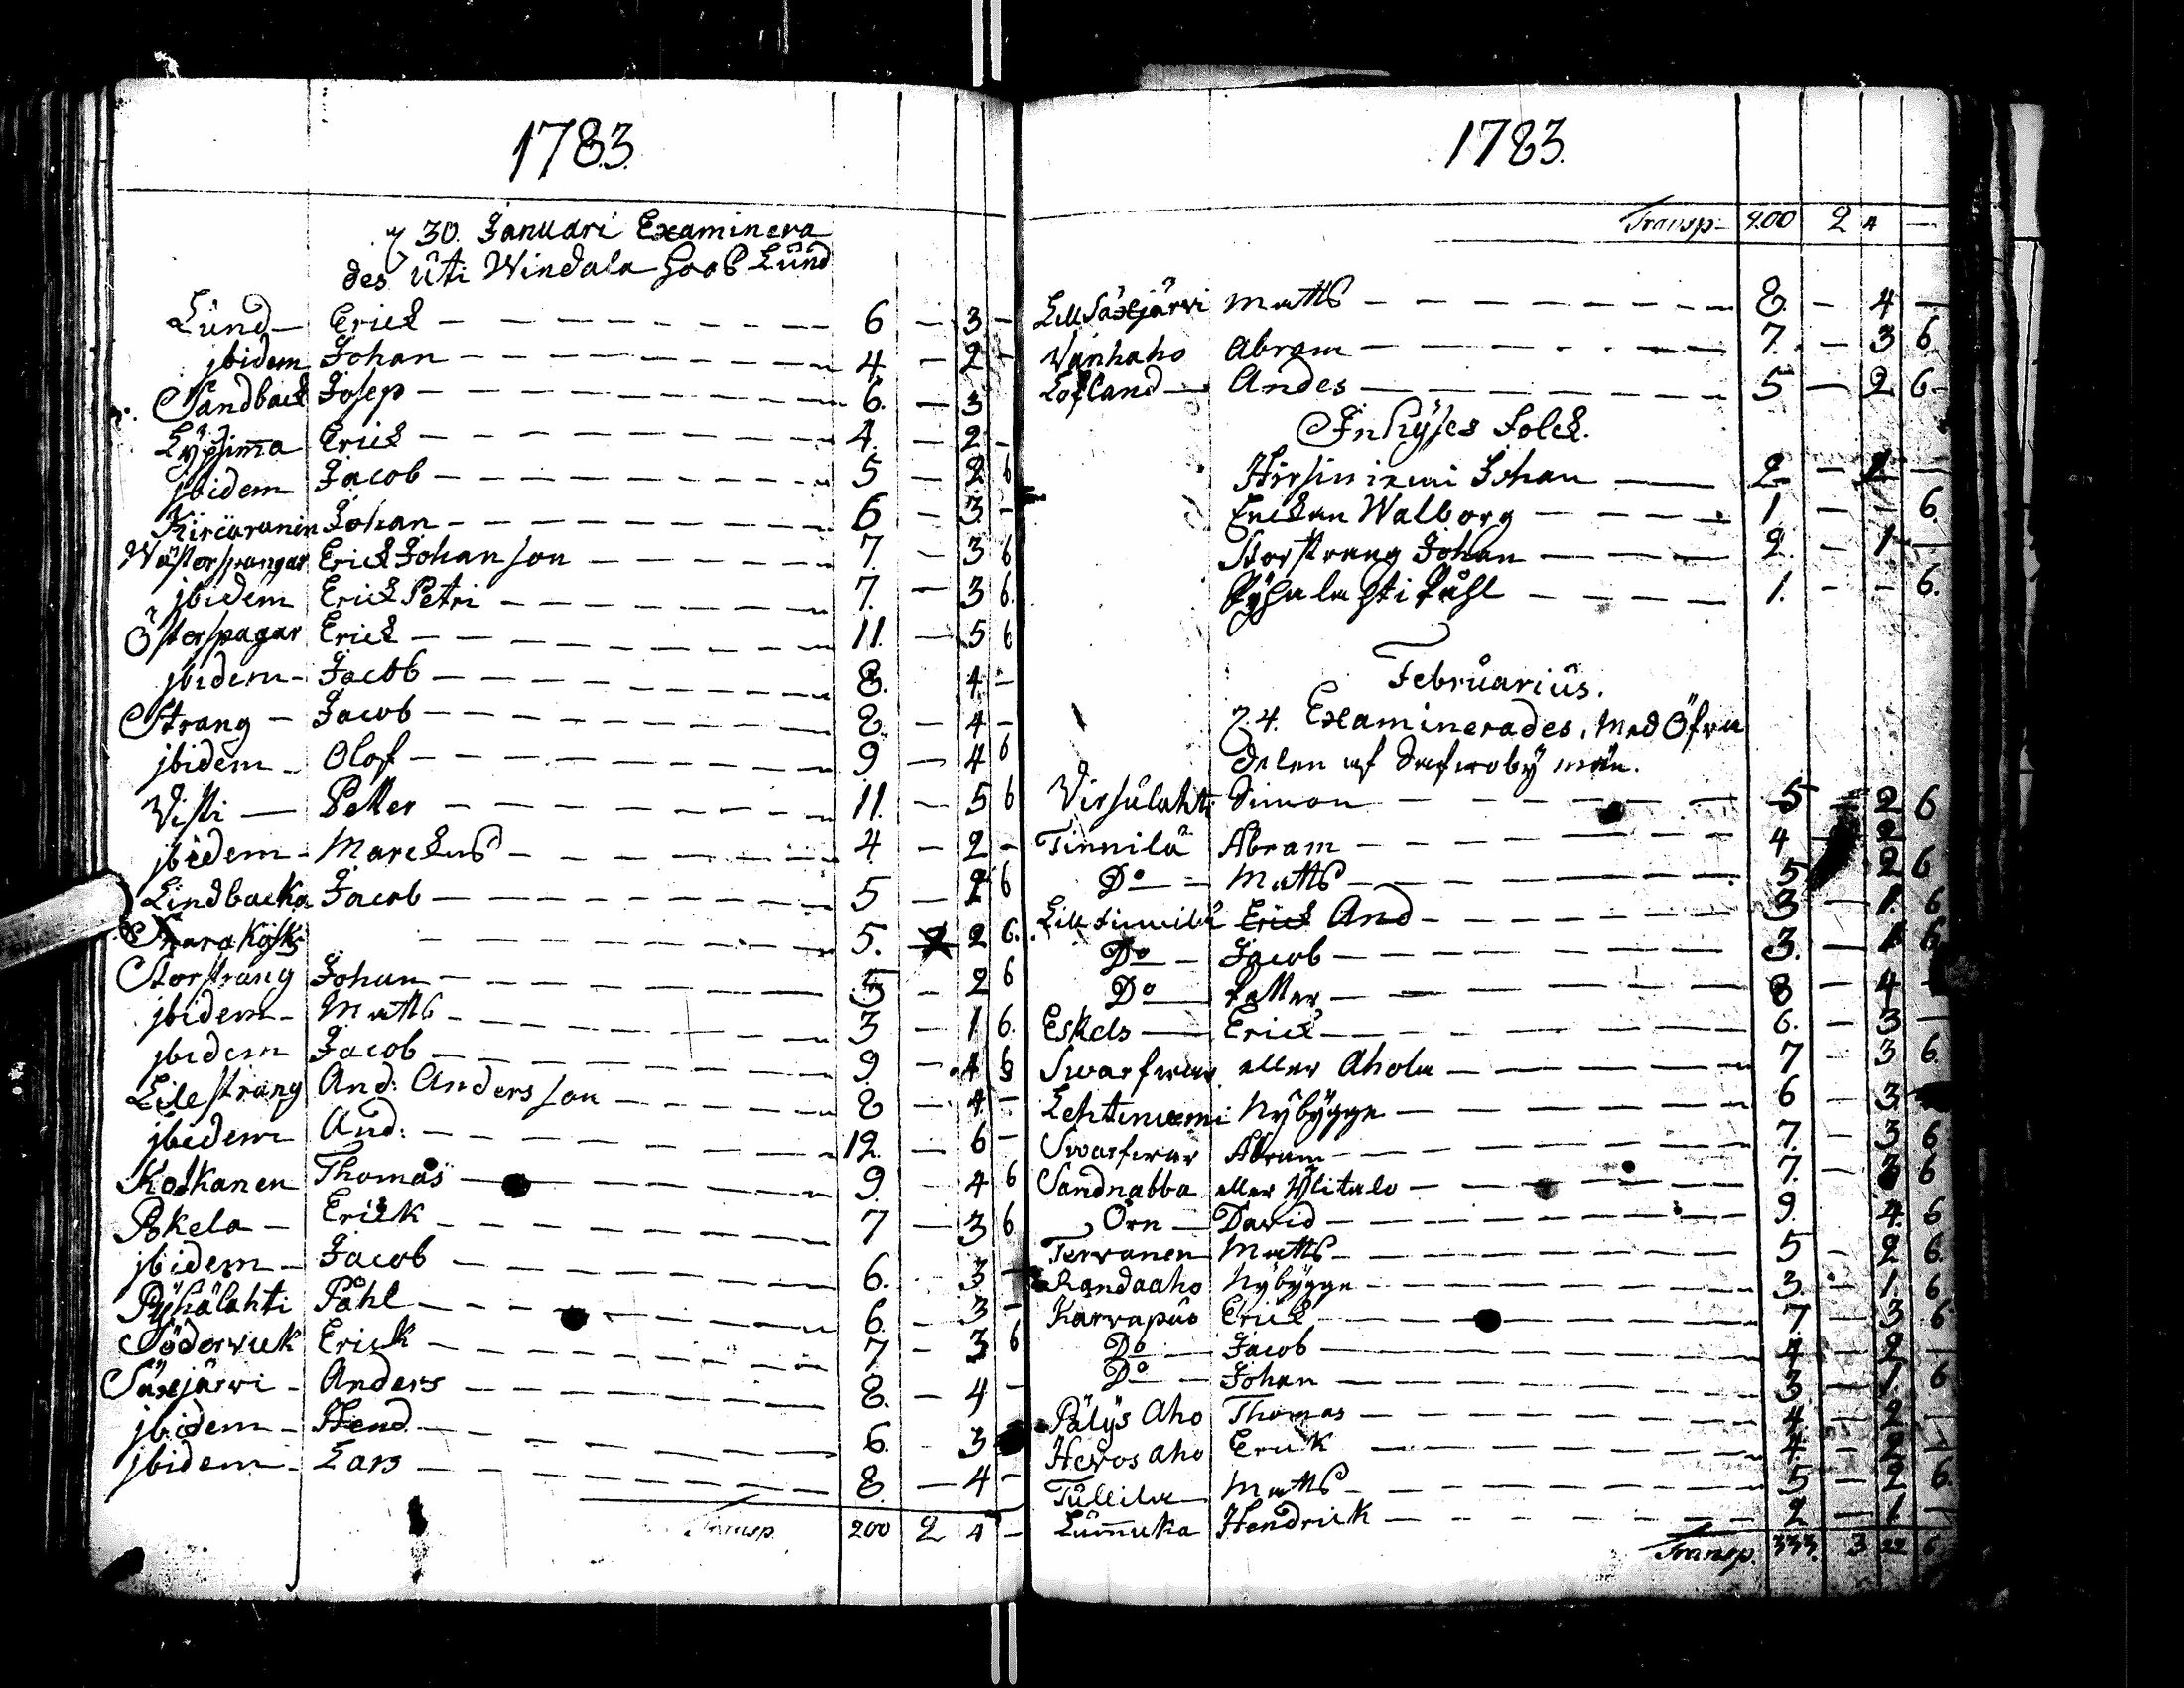 1783.
30. Januari Examinera
des uti Windala hoos Lund
Lund Erick 6 - 3 -
jbidem Johan 4 - 2 -
Sandback Josep 6. - 3
Erick 4. - 2 -
jbidem Jacob 5 - 2 6
Johan 6 - 3 -
Wästerspangar Erick Johanson 7. - 3 6
jbidem Erick Petri 7. - 3 6.
Österspagar Erick 11. - 5 6
jbidem Jacob 8. 4 -
Strang Jacob 8. - 4 -
jbidem Olof 9 - 4 6
Visti Petter 11. - 5 6
jbidem Marckus 4. - 2 -
Lindbacka Jacob 5 - 2 6
5. 2 6.
Storstrang Johan 5 - 2 6
jbidem Matts 3 - 1 6.
jbidem Jacob 9. - 4
Lilestrang And: Andersson 8 - 4 -
jbidem And: 12. - 6 -
Koskanen Thomas 9. - 4 6
Pokela Erick 7 - 3 6
jbidem Jacob 6. - 3 -
Pyhälahti Påhl 6. - 3 -
Södervick Erick 7 - 3 6
Säxejärvi Anders 8. - 4 -
jbidem Hend. 6. - 3
jbidem Lars 8. - 4 -
Transp. 200 2 4 -
1783.
Transp. 200 2 4 -
Lill Säxejärvi Matts 8. - 4 -
Vanhaho Abram 7. - 3 6.
Löfland Andes 5 - 2 6
Inhyses Folck.
Hirsiniemi Johan 2 - 1 -
Walborg 1 - - 6.
Storstrang Johan 2. - 1 -
Pyhälahti Påhl 1. - - 6.
Februarius.
4. Examinerades, med Öfra
delen af by män.
Virsulahti Simon 5 - 2 6
Tinnilä Abram 4 - 2 -
Do Matts 5 2 6
Lill Tinnilä Erick And 3 - 1. 6
Do Jacob 3. - 1 6
Do Petter 8 - 4 -
Eskels Erick 6. - 3 -
Svarfvar eller Ahola 7 - 3 6.
Lehtiniemi Nybygge 6 - 3
Svarfvar Abram 7. - 3 6
Sandnabba eller Ylitalo 7. - 3 6
Örn David 9. 4. 6
Tervanen Matts 5 - 2 6.
Randaaho Nybygge 3. 1. 6
Karvapus Erick 7 - 3 6
Do Jacob 4 - 2 -
Do Johan 3 - 1. 6
Pälys Aho Thomas 4. - 2 -
Hevos aho Erick 4. - 2 -
Tullila Matts 5 - 2 6.
Lumuka Hendrick 2 - 1. -
Transp. 333. 3 22 6